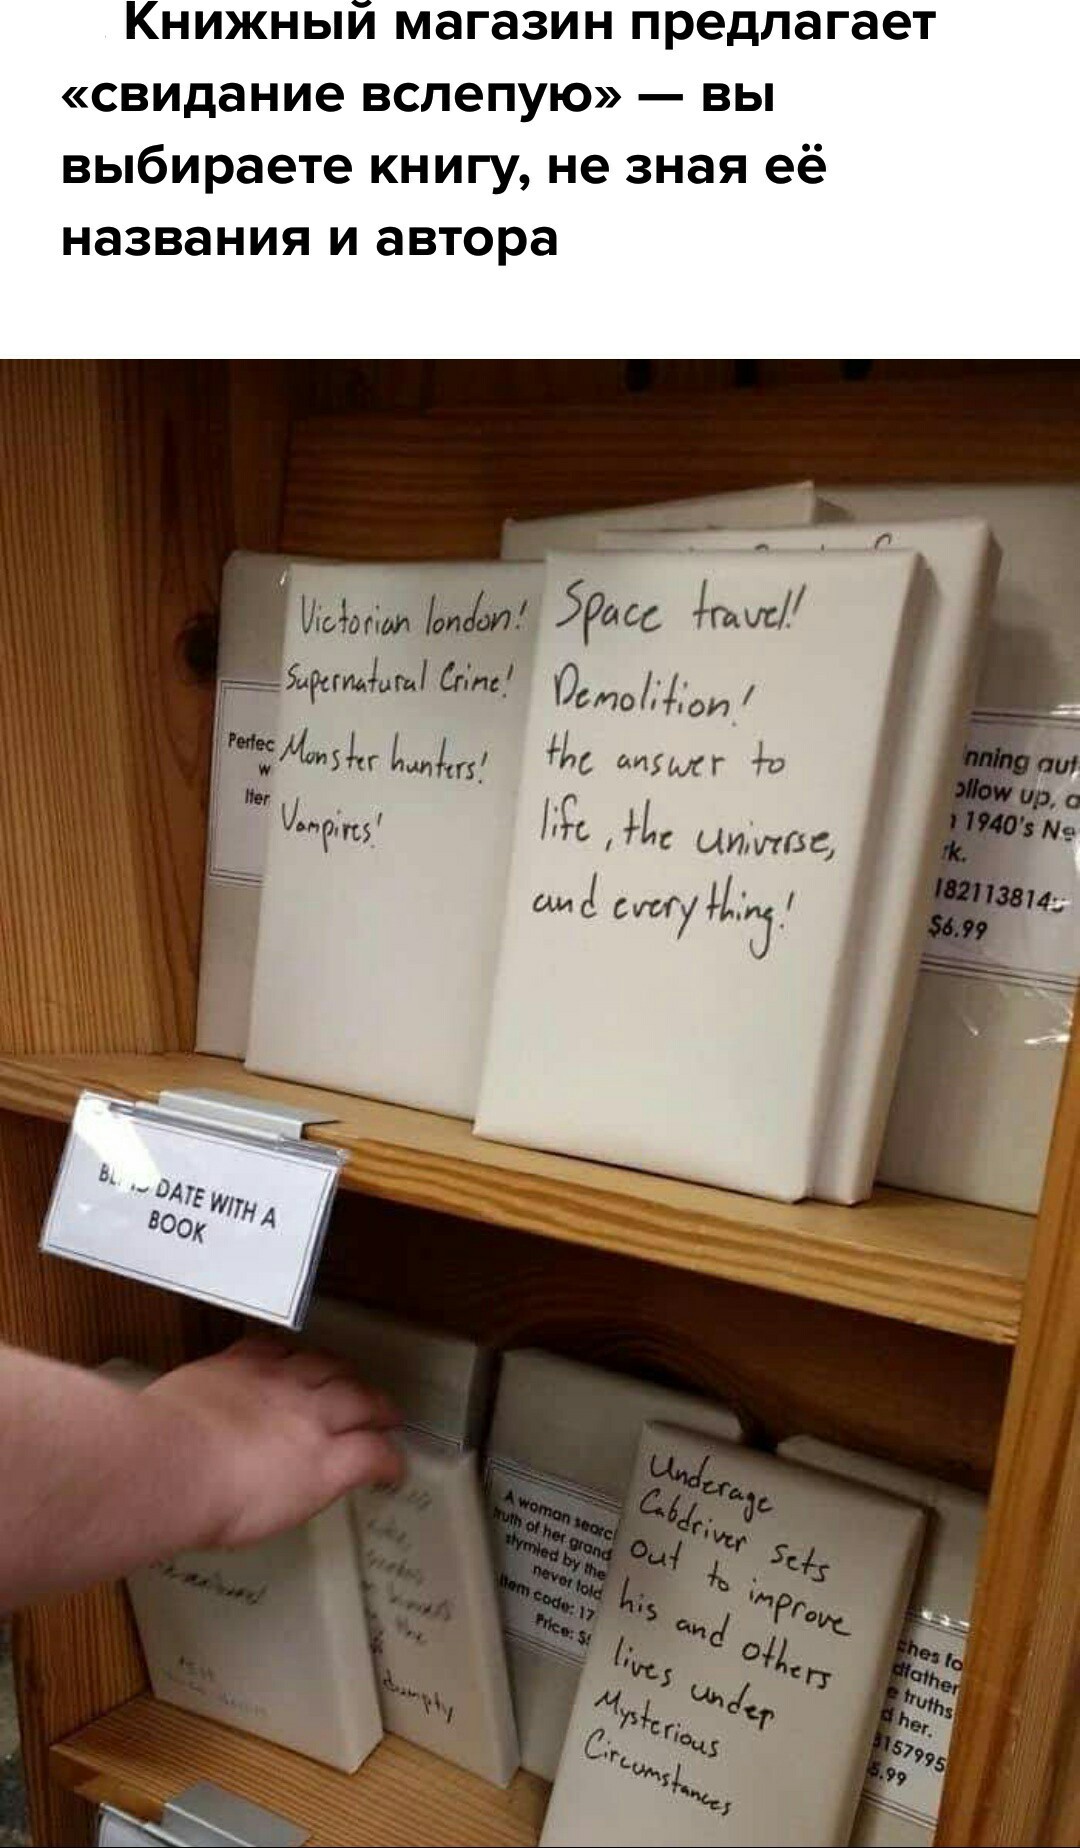 Книжный магазин предлагает
«свидание вслепую» — вы
выбираете книгу, не зная её
названия и автора
Victorian london!
Supernatural Crime!
Monster hunters!
Vampires!
Space travel!
Demolition!
the answer to
life, the universe,
and everything!
Perfec
w
Iter
nning aut
ollow up, a
1940's Ne
rk.
182113814
$6.99
DATE WITH A
BOOK
A woman searc
truth of her grand
stymied by the
never told
Item code: 17
Price: $
Underage
Cabdriver sets
out to improve
his and others
lives under
Mysterious
Circumstances
ches fo
dfather
e truths
d her.
8157995
5.99
dumpty